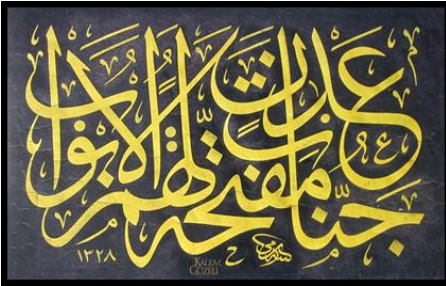 جنات عدن مفتحة لهم الأبواب
١٣٢٨
KALEM
GÜZELİ